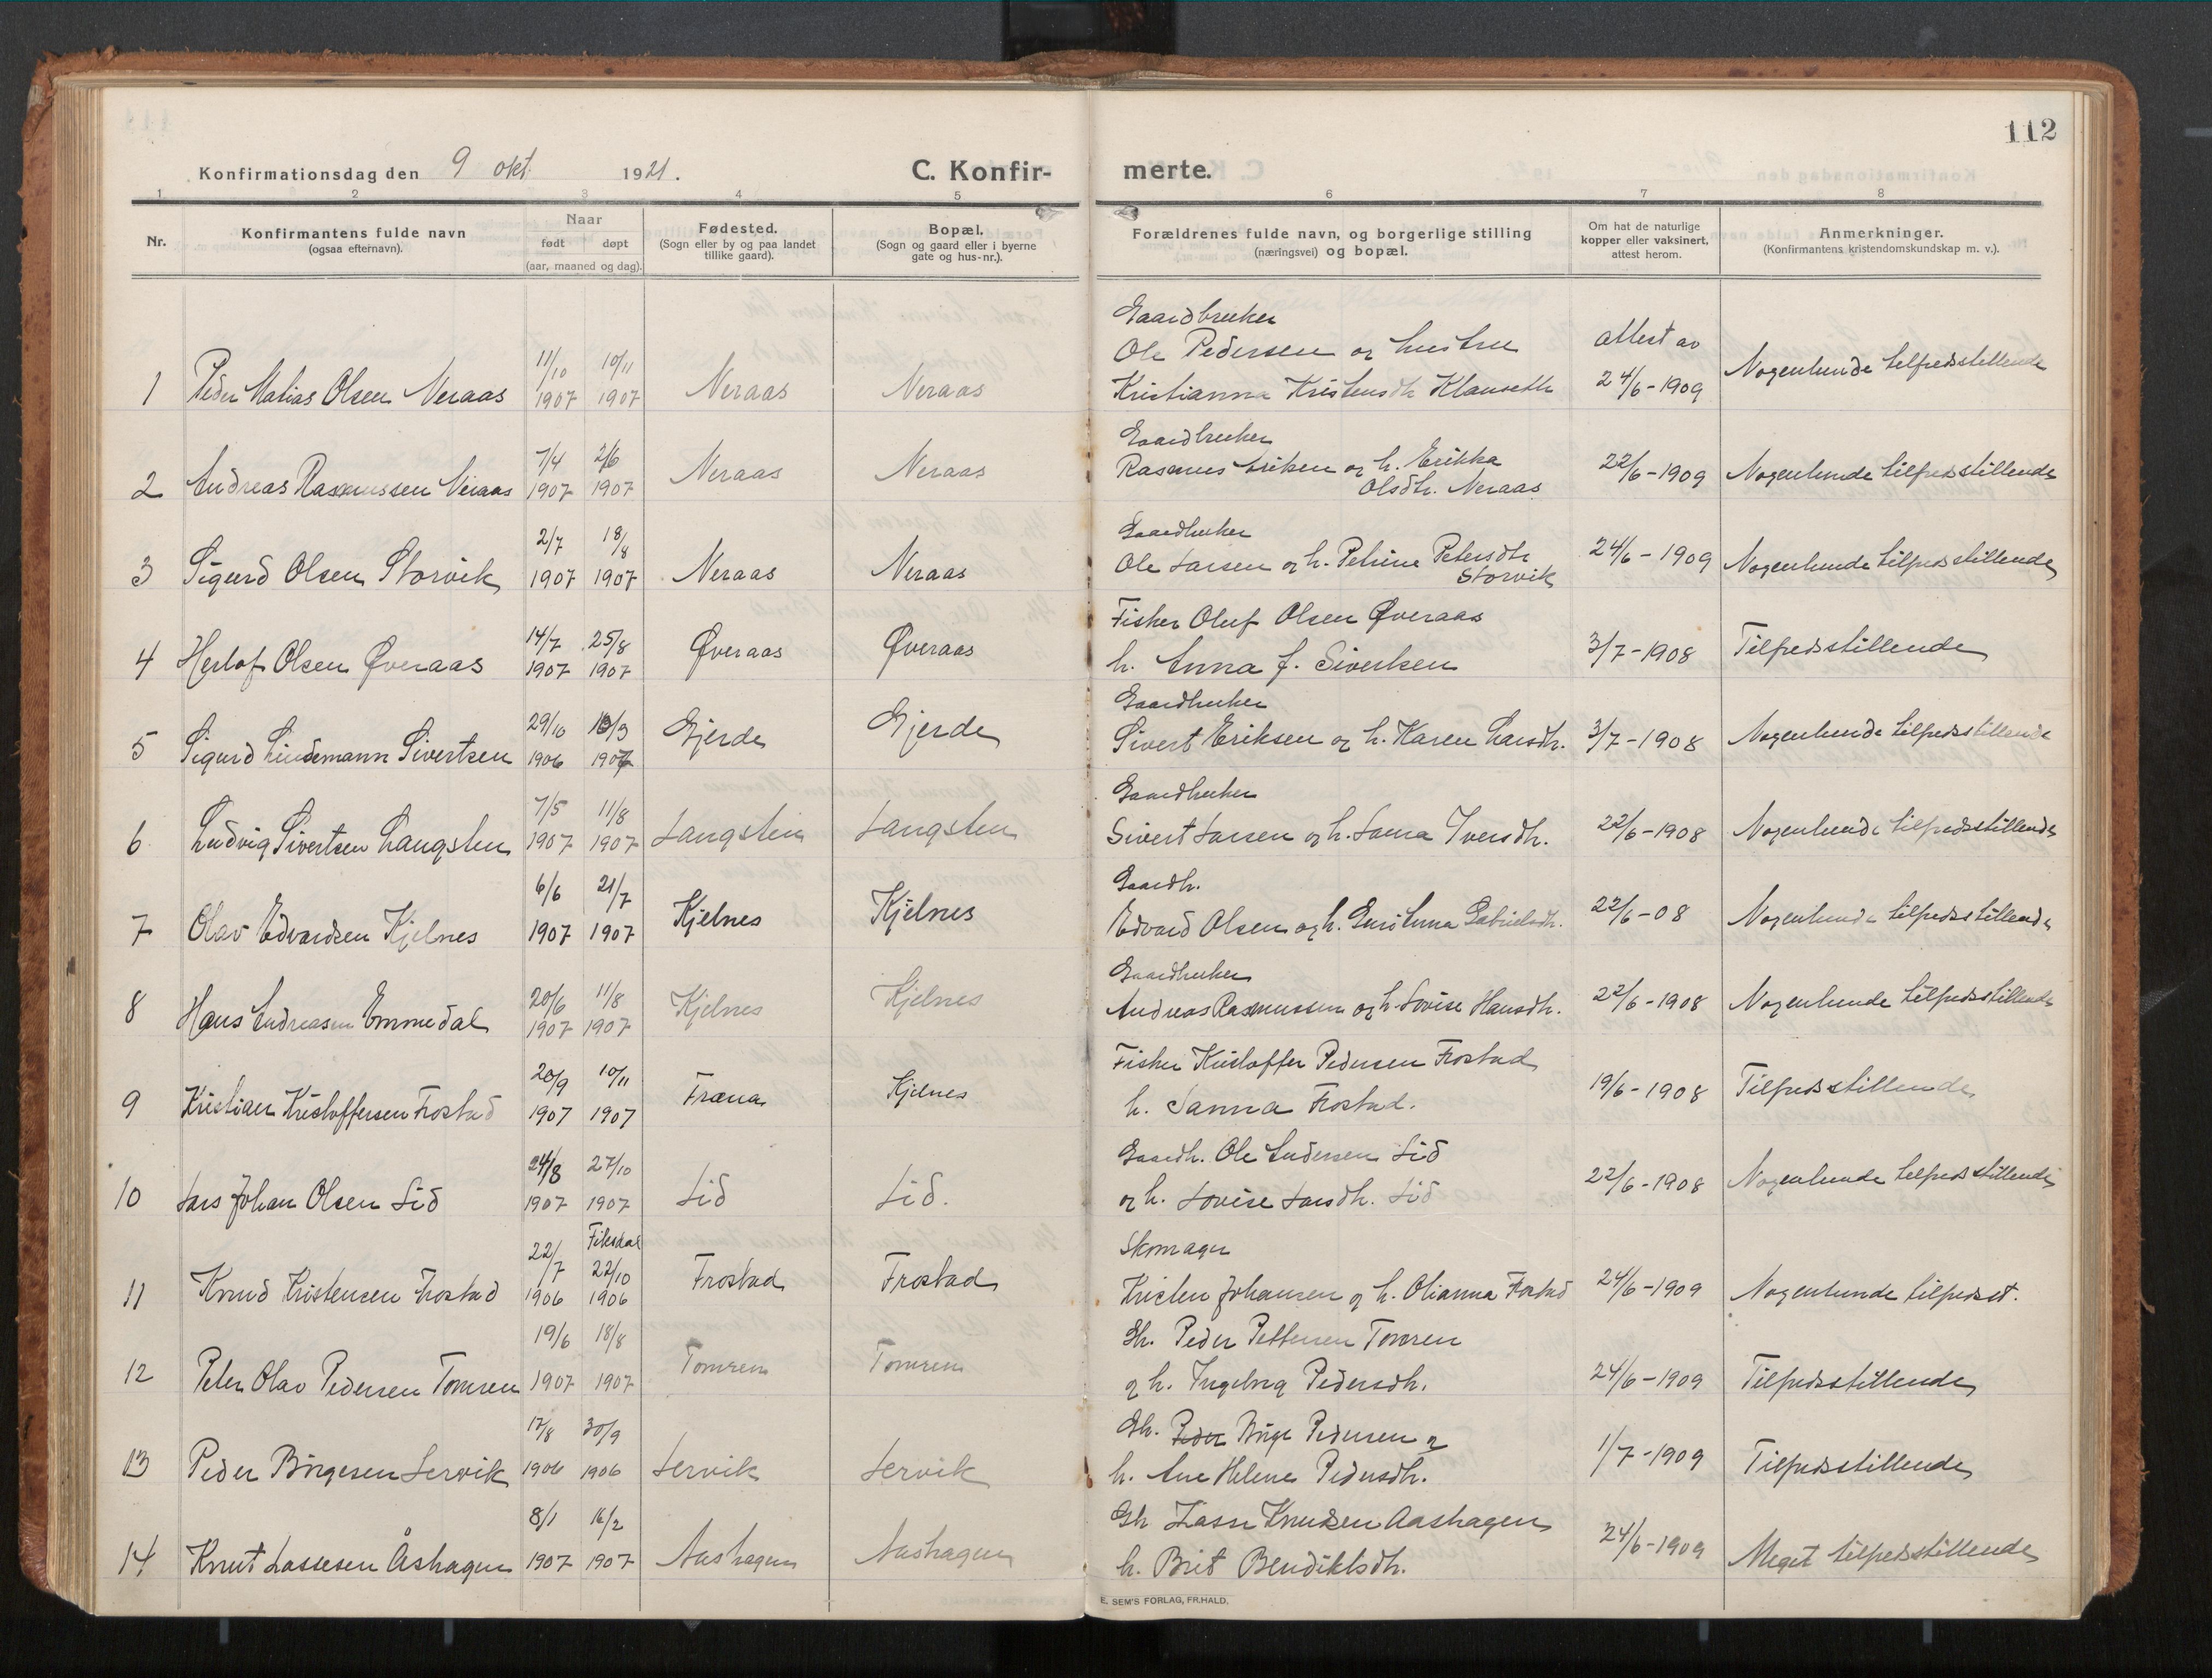 112
Konfirmationsdag den 9 okt. 1921.
C. Konfirmerte.
1 2 3 4 5 6 7 8
Nr.
Konfirmantens fulde navn (ogsaa efternavn).
Naar født døpt (aar, maaned og dag).
Fødested. (Sogn eller by og paa landet tillike gaard).
Bopæl. (Sogn og gaard eller i byerne gate og hus-nr.).
Forældrenes fulde navn, og borgerlige stilling (næringsvei) og bopæl.
Om hat de naturlige kopper eller vaksinert, attest herom.
Anmerkninger. (Konfirmantens kristendomskundskap m. v.).
1 Peder Matias Olsen Neraas 11/10 1907 10/11 1907 Neraas Neraas Gaardbruker Ole Pedersen og hustru Kristianna Kristensdtr Klauseth attest av 24/6-1909 Nogenlunde tilfredsstillende
2 Andreas Rasmussen Neraas 7/4 1907 2/6 1907 Neraas Neraas Gaardbruker Rasmus Eriksen og h. Erikka Olsdtr. Neraas 22/6-1909 Nogenlunde tilfredsstillende
3 Sigurd Olsen Storvik 2/7 1907 18/8 1907 Neraas Neraas Gaardbruker Ole Larsen og h. Petrine Petersdtr Storvik 24/6-1909 Nogenlunde tilfredsstillende
4 Herlof Olsen Øveraas 14/7 1907 25/8 1907 Øveraas Øveraas Fisker Oluf Olsen Øveraas h. Anna f. Sivertsen 3/7-1908 Tilfredsstillende
5 Sigurd Lindemann Sivertsen 29/10 1906 /3 1907 Gjerde Gjerde Gaardbruker Sivert Eriksen og h. Karen Larsdtr. 3/7-1908 Nogenlunde tilfredsstillende
6 Ludvig Sivertsen Langsten 7/5 1907 11/8 1907 Langsten Langsten Gaardbruker Sivert Larsen og h. Iversdtr. 22/6-1908 Nogenlunde tilfredsstillende
7 Olav Edvardsen Kjelnes 6/6 1907 21/7 1907 Kjelnes Kjelnes Gaardb. Edvard Olsen og h. Gabrielsdtr. 22/6-08 Nogenlunde tilfredsstillende
8 Hans Andreasen Emmedal 20/6 1907 11/8 1907 Kjelnes Kjelnes Gaardbruker Andreas Rasmussen og h. Lovise Hansdtr. 22/6-1908 Nogenlunde tilfredsstillende
9 Kristian Kristoffersen Frostad 20/9 1907 10/11 1907 Fræna Kjelnes Fisker Kristoffer Pedersen Frostad h. Sanna Frostad. 19/6-1908 Tilfredsstillende
10 Lars Johan Olsen Lid 24/8 1907 27/10 1907 Lid Lid. Gaardb. Ole Andersen Lid og h. Lovise Larsdtr. Lid 22/6-1908 Nogenlunde tilfredsstillende
11 Knud Kristensen Frostad 22/7 1906 Fiksdal 22/10 1906 Frostad Frostad Skomager Kristen Johansen og h. Olianna Frostad 24/6-1909 Nogenlunde tilfredsst.
12 Peter Olav Pedersen Tomren 19/6 1907 18/8 1907 Tomren Tomren Gb. Peder Pettersen Tomren og h. Ingeborg Pedersdtr. 24/6-1909 Tilfredsstillende
13 Peder Børgesen Lervik 17/8 1906 30/9 1906 Lervik Lervik Gb. Peder Børge Pedersen og h. Ane Helene Pedersdtr. 1/7-1909 Tilfredsstillende
14 Knut Lassesen Åshagen 8/1 1907 16/2 1907 Aashagen Aashagen Gb Lasse Knudsen Aashagen h. Brit Bendiktsdtr. 24/6-1909 Meget tilfredsstillende
E. SEM'S FORLAG, FR.HALD.